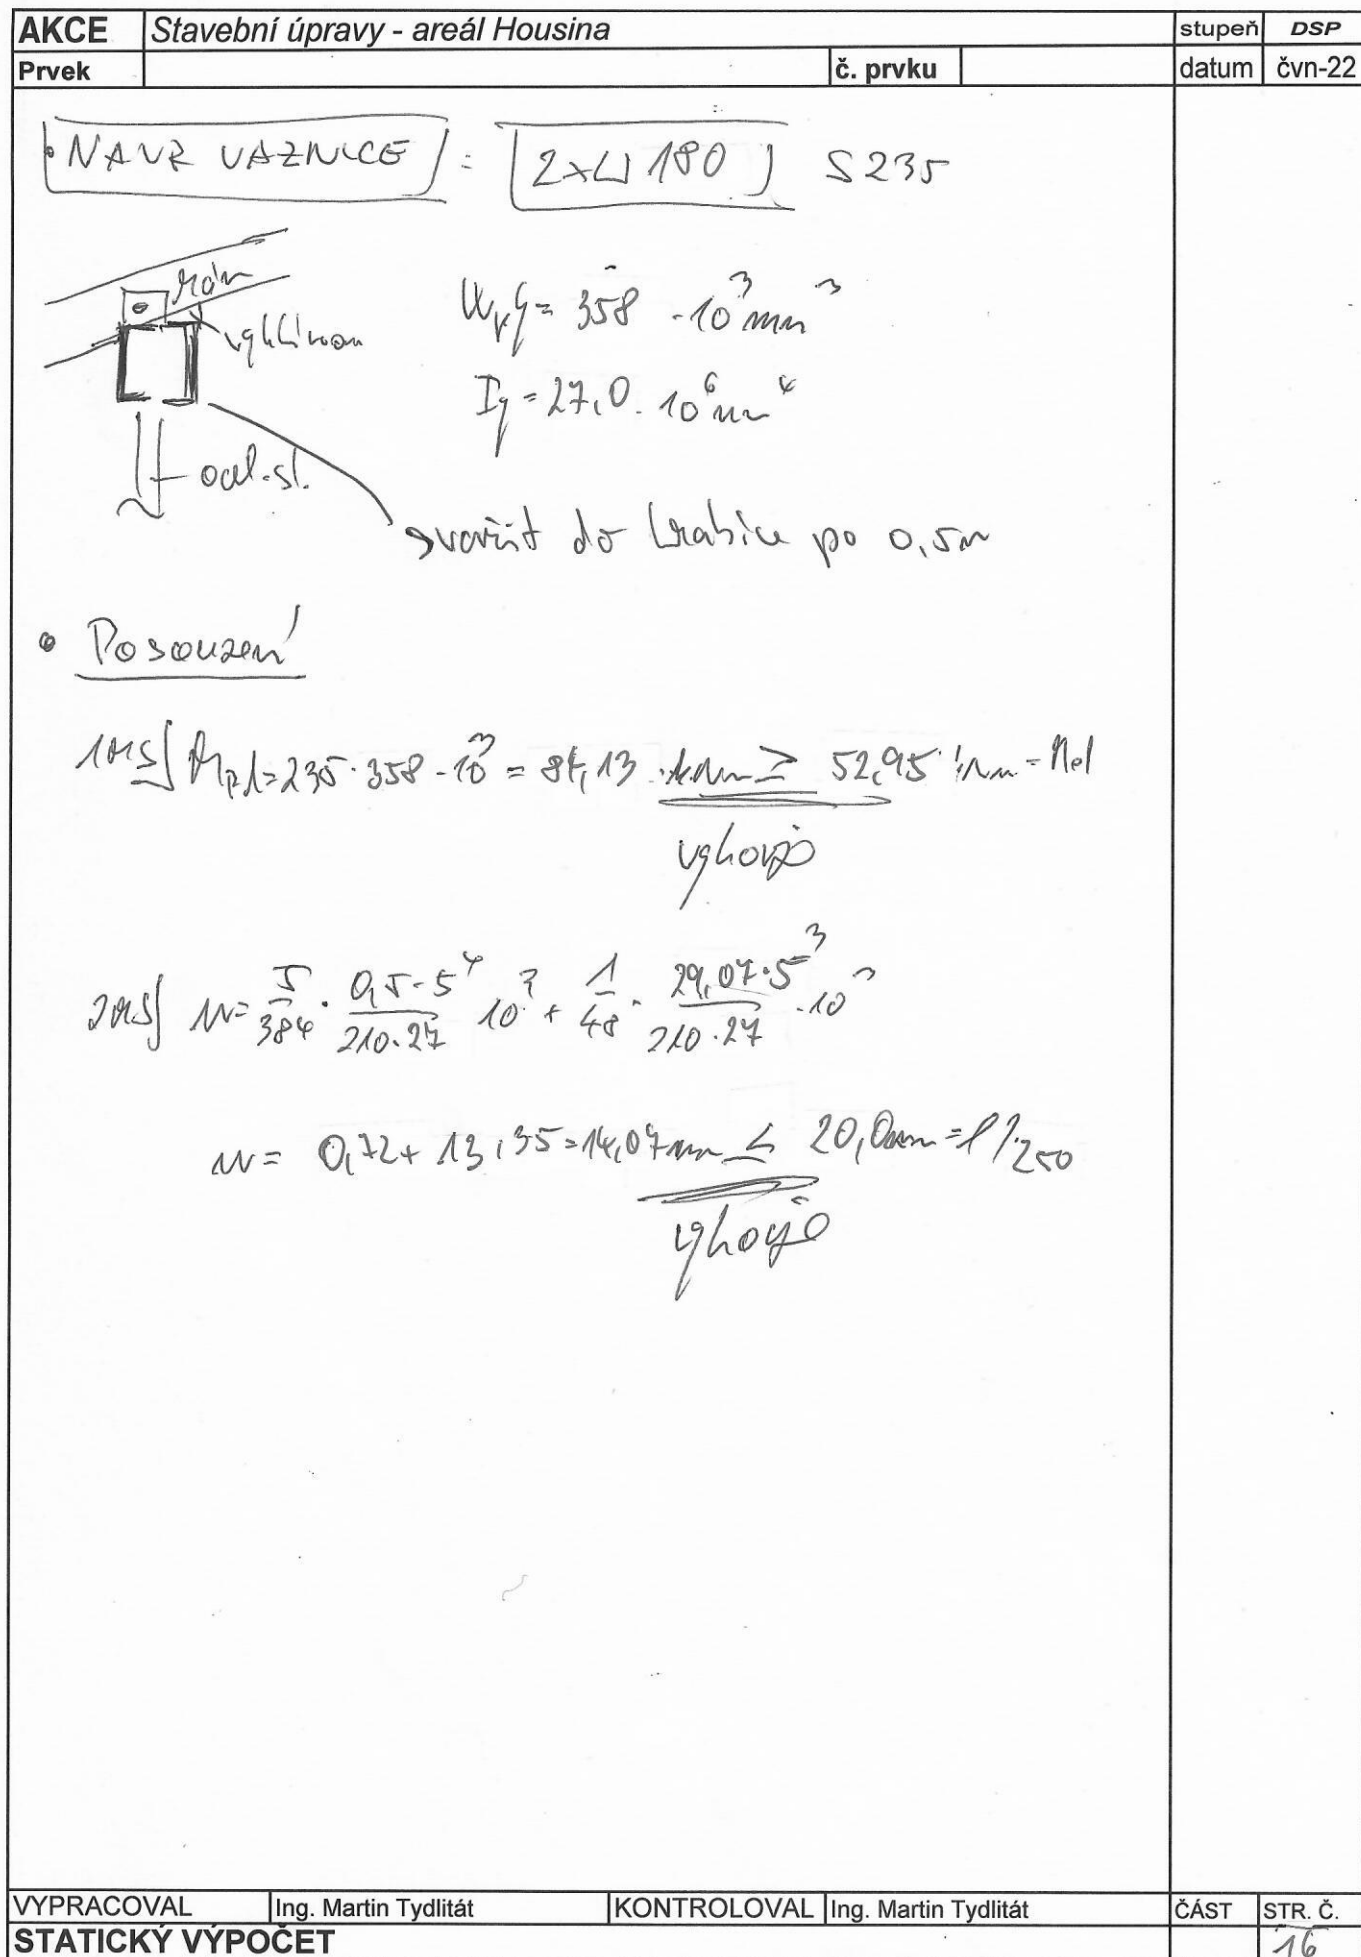 AKCE Stavební úpravy - areál Housina stupeň DSP
Prvek č. prvku datum čvn-22
• NAVR VAZNICE = 2x⊔ 180 S 235
rám
Wy = 358 · 10³ mm³
Iy = 27,0 · 10⁶ mm⁴
ocel. sl.
svařit do krabice po 0,5m
• Posouzení
1MS MRd = 235 · 358 · 10³ = 84,13 kNm ≥ 52,95 kNm = Med
vyhovuje
2MS w = 5/384 · 0,5·5⁴/210·27 10³ + 1/48 · 29,07·5³/210·27 · 10³
w = 0,72 + 13,35 = 14,07 mm ≤ 20,0mm = l/250
vyhovuje
VYPRACOVAL Ing. Martin Tydlitát KONTROLOVAL Ing. Martin Tydlitát ČÁST STR. Č.
STATICKÝ VÝPOČET 16